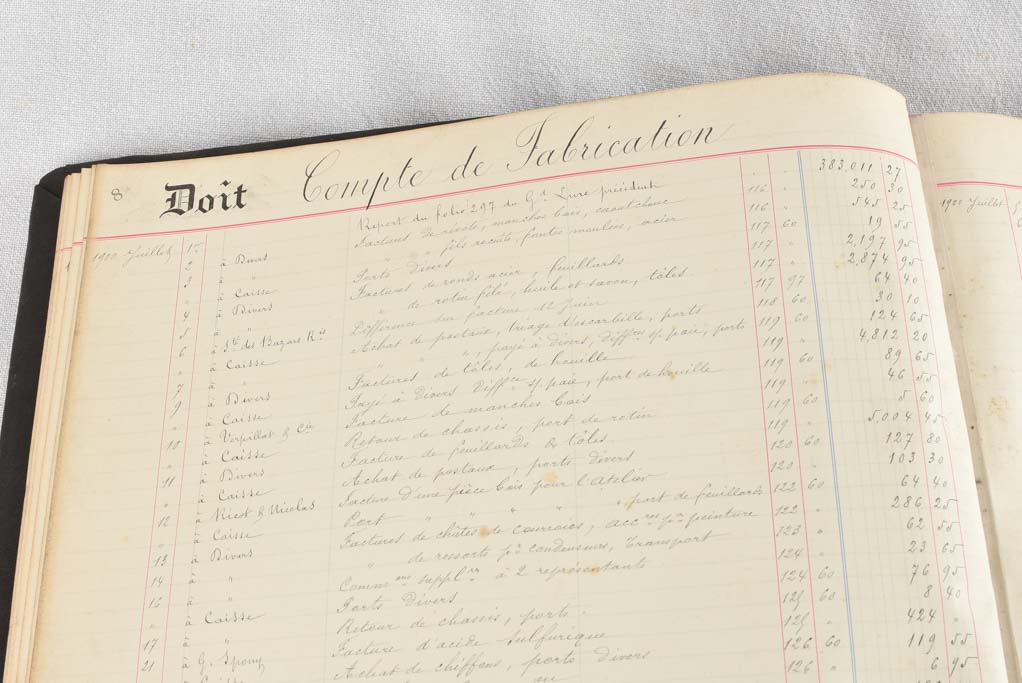 8 Doit Compte de Fabrication
Report du folio 297 du Gd Livre précédent 383,011 27
Juillet 1er à Divers Factures de rivets, manches bois, caoutchouc 116 " 250 30
2 " fils recuits, fontes moulées, acier 116 " 545 25
3 à Caisse Ports divers 117 60 19 55
4 à Divers Factures de ronds acier, feuillards 117 " 2,197 95
5 " " de rotin filé, huile et savon, tôles 117 " 2,874 95
6 à Sté des Bazars Ris Différence sur facture 12 Juin 117 97 64 40
" à Caisse Achat de postaux, triage d'escarbille, ports 118 60 30 10
7 " " payé à divers, diffces s/ paie, ports 119 60 124 65
9 à Divers Factures de tôles, de houille 119 " 4,812 20
" à Caisse Payé à Divers Diffce s/ paie, port de houille 119 60 89 65
10 à Verpillat & Cie Facture de manches bois 119 " 46 55
" à Caisse Retour de chassis, port de rotin 119 60 5 60
11 à Divers Facture de feuillards & tôles 119 " 5,004 45
" à Caisse Achat de postaux, ports divers 120 60 127 80
12 à Nicot & Nicolas Facture d'une pièce bois pour l'atelier 120 " 103 30
" à Caisse Port " " " " , port de feuillards 122 60 64 40
13 à Divers Factures de chûtes de courroies, accres pr peinture 122 " 286 25
14 à " " de ressorts pr condenseurs, Transport 123 " 62 55
16 à " Commons supplres à 2 représentants 124 " 23 65
" à Caisse Ports divers 124 60 76 95
17 à " Retour de chassis, ports 125 60 8 40
21 à G. Spony Facture d'acide sulfurique 125 " 424 "
à Caisse Achat de chiffons, ports divers 126 60 119 55
126 " 6 95
Juillet